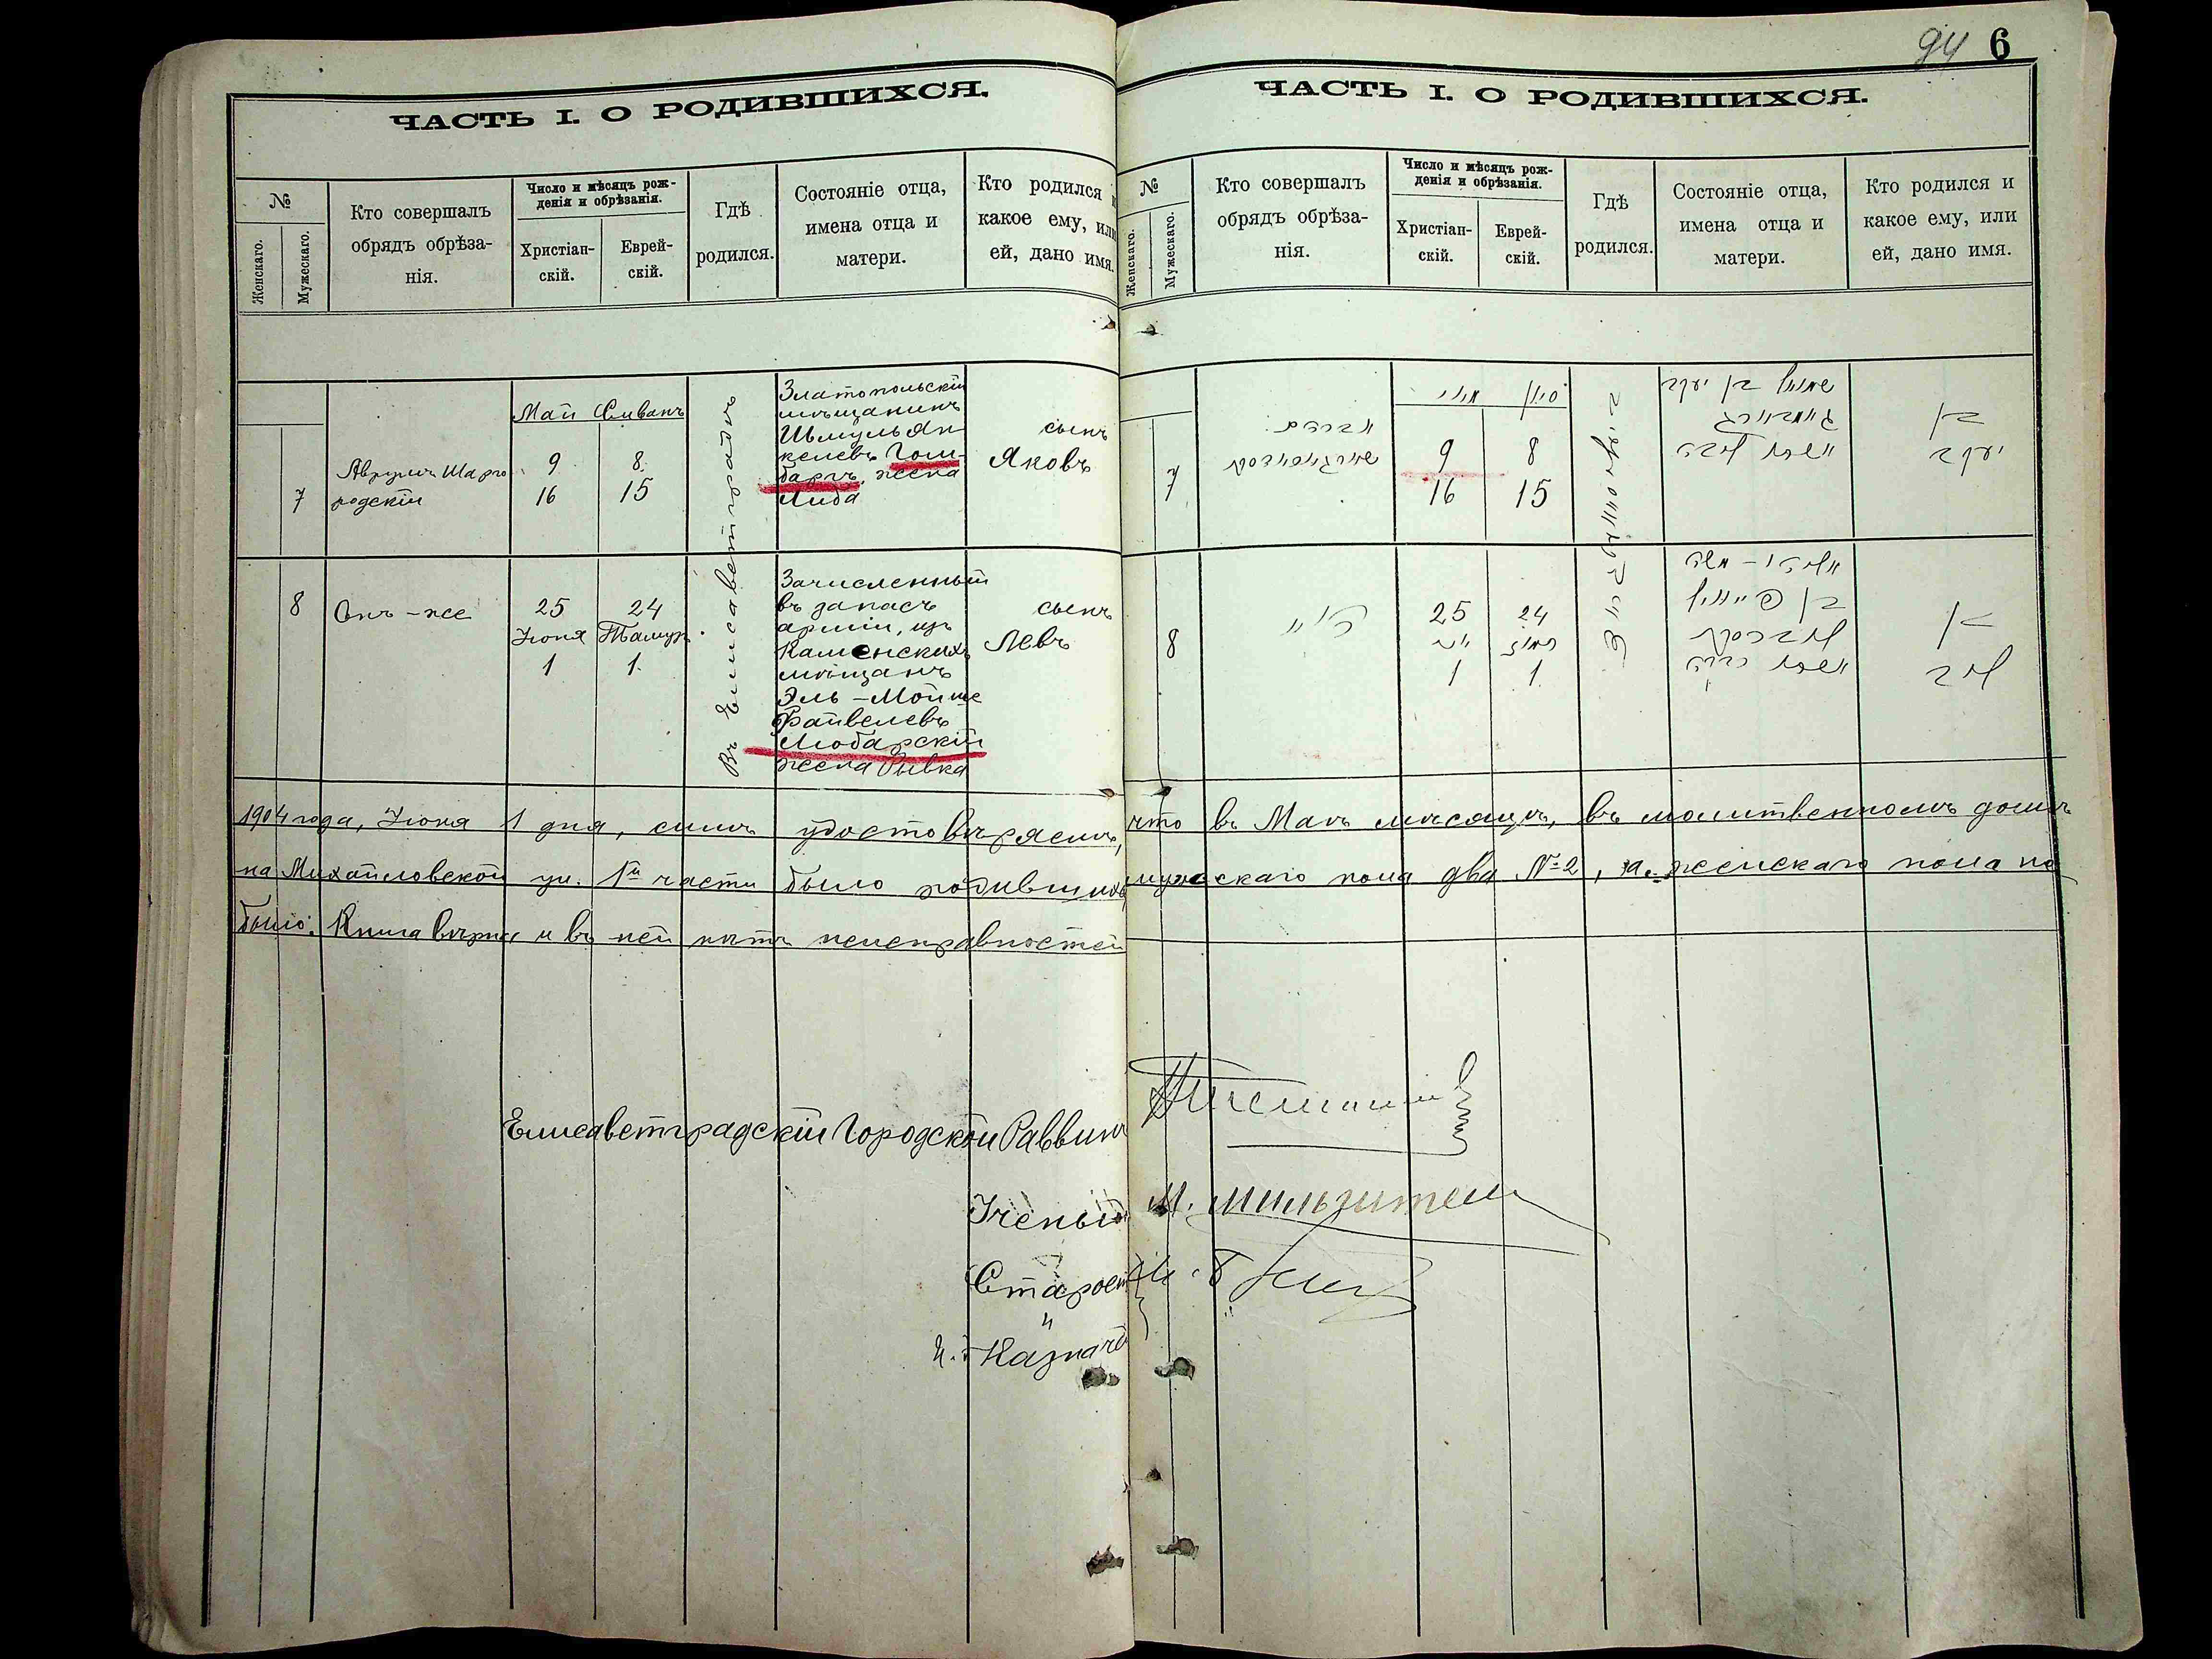 94 6
ЧАСТЬ I. О РОДИВШИХСЯ.
№
Женскаго.
Мужескаго.
Кто совершалъ
обрядъ обрѣза-
нія.
Число и мѣсяцъ рож-
денія и обрѣзанія.
Христіан-
скій.
Еврей-
скій.
Гдѣ
родился.
Состояніе отца,
имена отца и
матери.
Кто родился и
какое ему, или
ей, дано имя.
7
Аврумъ Шарго
родскій
Май Сиванъ
9 8
16 15
Въ Елисаветградѣ
Златопольскій
мѣщанинъ
Шмуль Ян-
келевъ Гом-
баргъ, жена
Либа
сынъ
Яковъ
8
Онъ-же
25 24
Іюня Тамузъ
1 1
Зачисленный
въ запасъ
арміи, изъ
Каменскихъ
мѣщанъ
Эль-Мойше
Файвелевъ
Любарскій
жена Рывка
сынъ
Левъ
ЧАСТЬ I. О РОДИВШИХСЯ.
№
Женскаго.
Мужескаго.
Кто совершалъ
обрядъ обрѣза-
нія.
Число и мѣсяцъ рож-
денія и обрѣзанія.
Христіан-
скій.
Еврей-
скій.
Гдѣ
родился.
Состояніе отца,
имена отца и
матери.
Кто родился и
какое ему, или
ей, дано имя.
7
מאיי סיון
9 8
16 15
בן
יעקב
8
25 24
1 1
בן
ליב
1904 года, Іюня 1 дня, симъ удостовѣряемъ, что въ Маѣ мѣсяцѣ, въ молитвенномъ домѣ
на Михайловской ул. 1й части было родившихъ мужескаго пола два №2, а женскаго пола не
было. Книга вѣрна и въ ней нѣтъ неисправностей
Елисаветградскій Городской Раввинъ
Ученый
Старост
и
Казначе